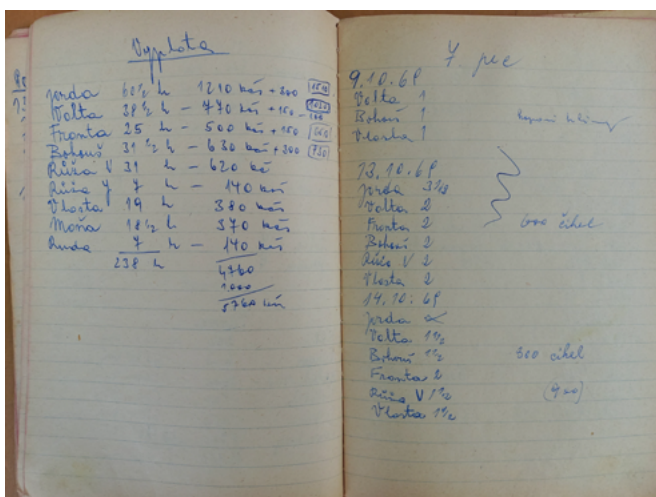 Vyplata
Jarda 60½ h 1210 kčs + 300 1510
Volta 38½ h - 770 kčs + 150 - 100
Franta 25 h - 500 kčs + 150
Bohouš 31½ h - 630 kčs + 300
Růža V 31 h - 620 kč
Růža J 7 h - 140 kčs
Vlasta 19 h 380 kčs
Moňa 18½ h 370 kčs
Ruda 7 h - 140 kčs
238 h 4760
1000
5760 kčs
7 pec
9.10.69
Volta 1
Bohouš 1
Vlasta 1
13.10.69
Jarda 3½
Volta 2
Franta 2 600 cihel
Bohouš 2
Růža V 2
Vlasta 2
14.10.69
Jarda
Volta 1½
Bohouš 1½ 300 cihel
Franta 2
Růža V 1½ (900)
Vlasta 1½